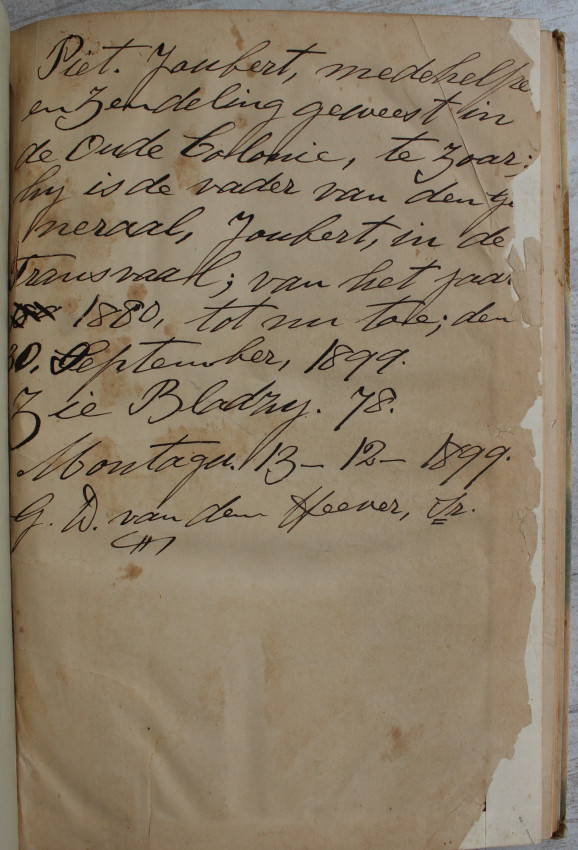 Piet. Joubert, medehelpe
en Zendeling geweest in
de Oude Colonie, te Zoar;
hy is de vader van den Ge
neraal, Joubert, in de
Transvaal; van het jaar
1880, tot nu toe; den
30, September, 1899.
Zie Bladzy. 78.
Montagu. 13 – 12 – 1899.
G. D. van den Heever, Sr.